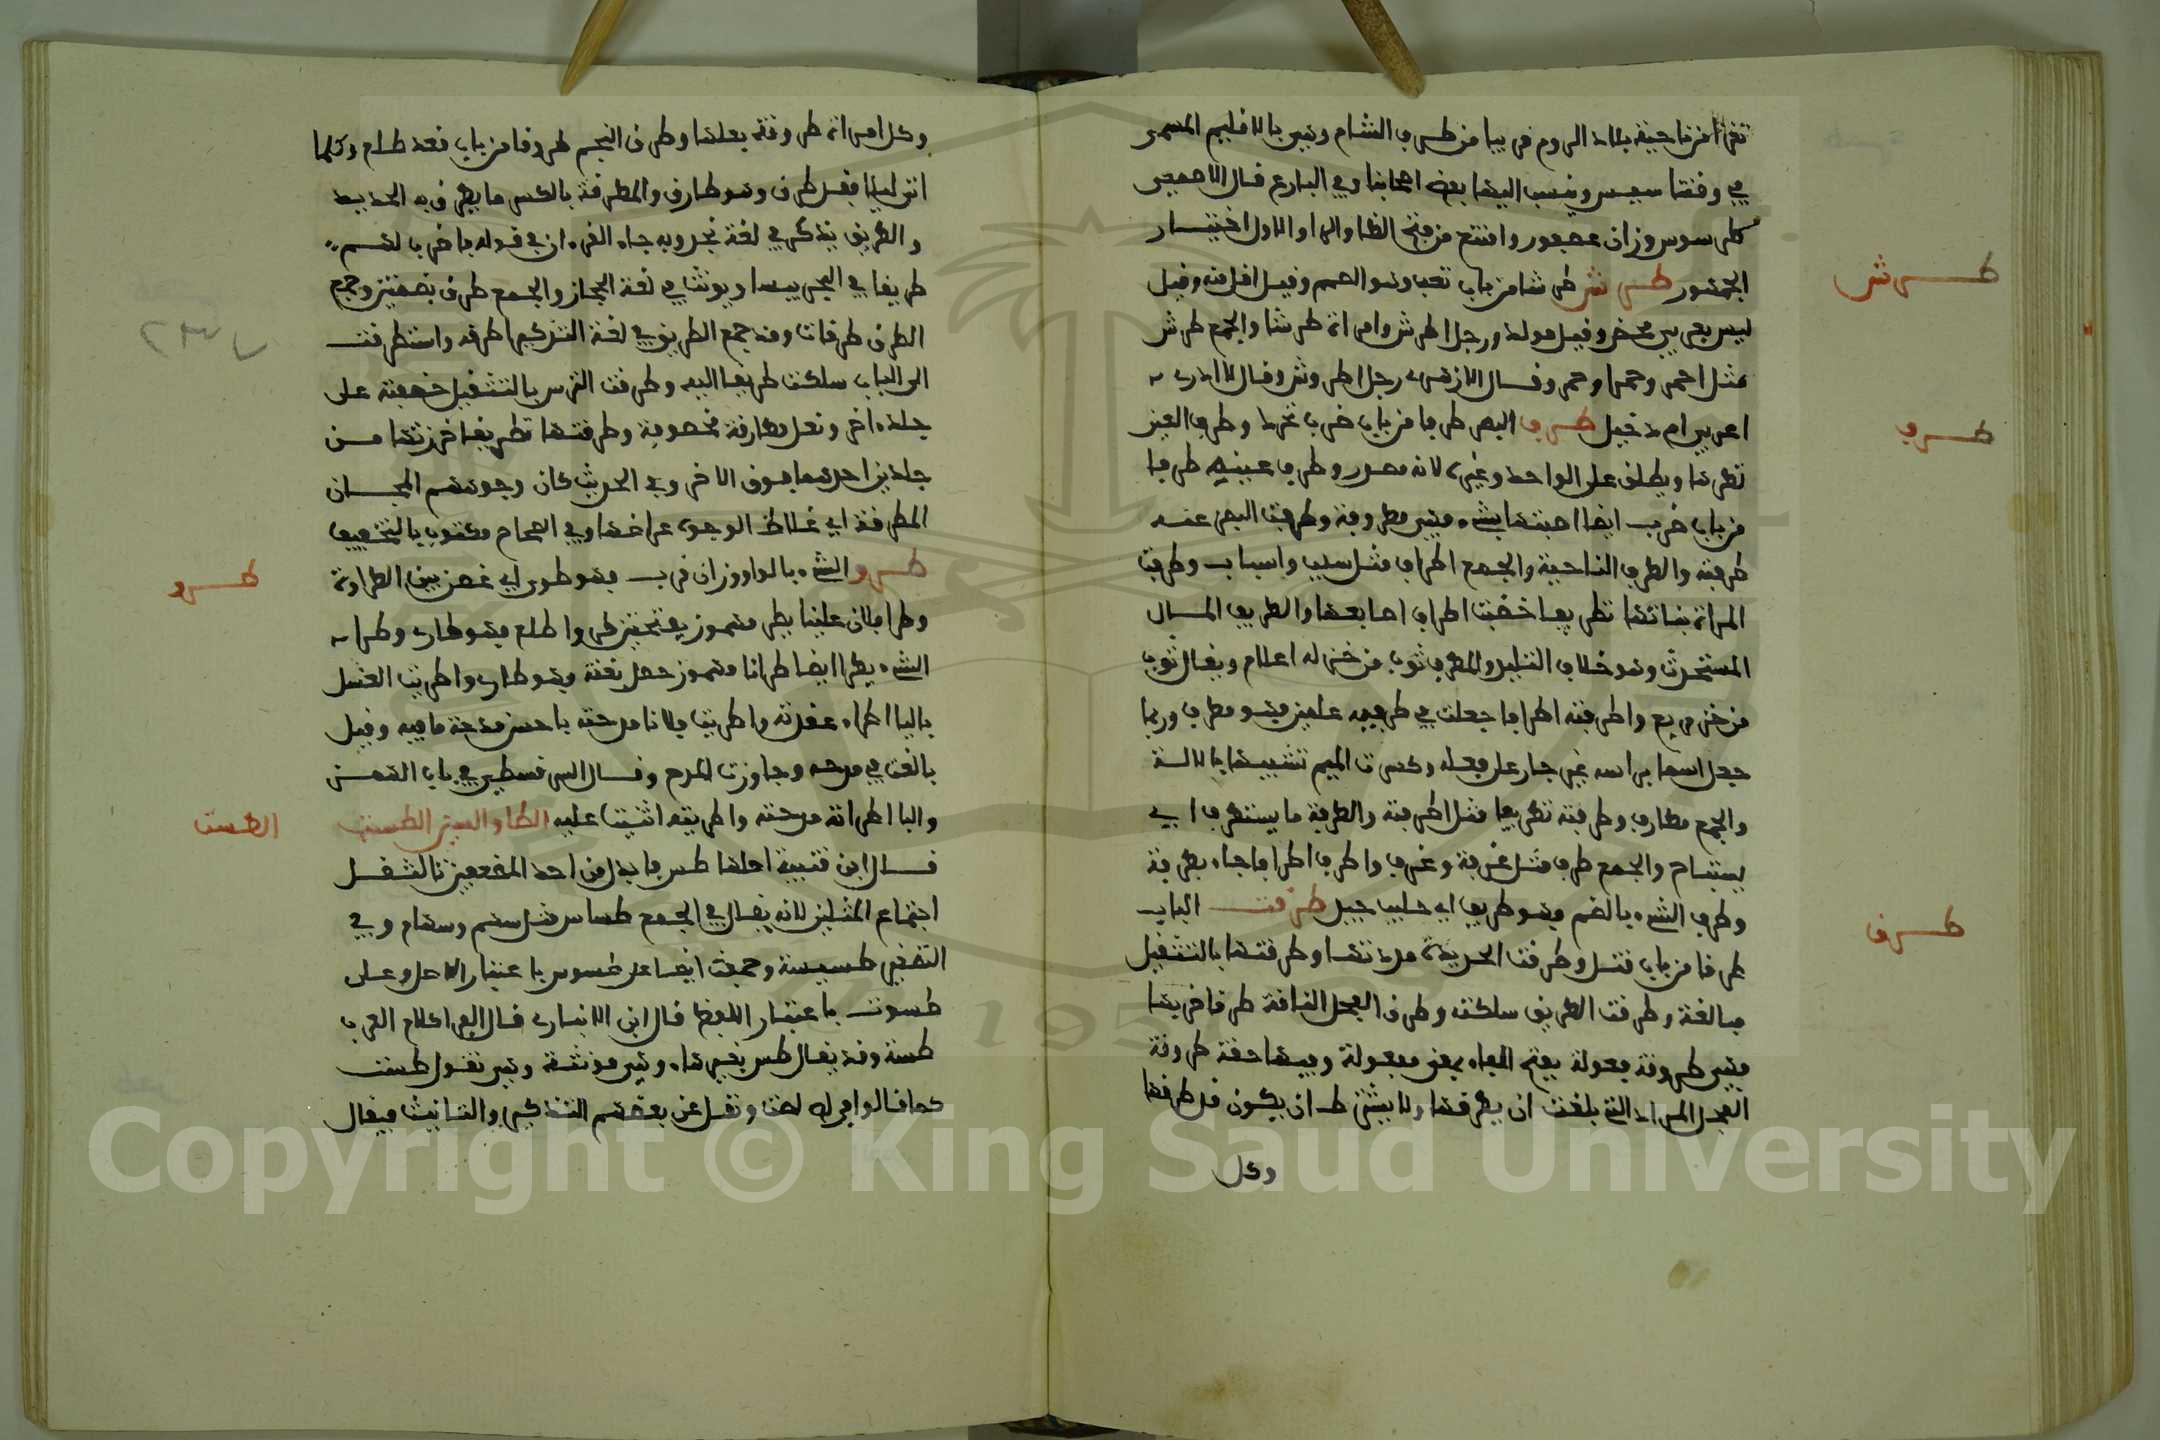 ثغرا من ناحية بلاد الروم قريبا من طرف الشام وهي بالاقليم المسمى
في وقتنا سيس وينسب اليها بعض اصحابنا وفي البارع قال الاصمعي
طرسوس وزان عصفور وامتنع من فتح الطا والرا والاول اختيار
الجمهور طرش طرشا من باب تعب وهو الصمم وقيل اقل منه وقيل
ليس بعربي محض وقيل مولد ورجل اطرش وامراة طرشا والجمع طرش
مثل احمر وحمرا وحمر وقال الازهري رجل اطروش وقال لا ادري
اعربي ام دخيل طرف البصر طرفا من باب ضرب تحرك وطرف العين
نظرها ويطلق على الواحد وغيره لانه مصدر وطرف عينه طرفا
من باب ضرب ايضا اصبتها بشيء فهي مطروفة وطرفت البصر عنه
طرفته والطرف الناحية والجمع اطراف مثل سبب واسباب وطرفت
المراة بنانها تطريفا خضبت اطراف اصابعها والطريف المال
المستحدث وهو خلاف التليد والمطرف ثوب من خز له اعلام ويقال ثوب
من خز مربع واطرفته اطرافا جعلت في طرفيه علمين فهو مطرف وربما
جعل اسما براسه غير جار على فعله وكسرت الميم تشبيها بالالة
والجمع مطارف وطرفته تطريفا مثل اطرفته والطرفة ما يستطرف اي
يستملح والجمع طرف مثل غرفة وغرف واطرف اطرافا جاء بطرفة
وطرف الشيء بالضم فهو طريف اي
طرقت الباب
طرقا من باب قتل وطرقت الحديدة مددتها وطرقتها بالتثقيل
مبالغة وطرقت الطريق سلكته وطرق الفحل الناقة طرقا ضربها
فهي طروقة فعولة بفتح الفاء بمعنى مفعولة وفيها حقة طروقة
الفحل المراد التي بلغت ان يطرقها ولا يشترط ان يكون قد طرقها
وكل
طرش
طرف
طرق
وكل امراة طروقة بعلها وطرق النجم طروقا من باب قعد طلع وكلما
اتى ليلا فقد طرق وهو طارق والمطرقة بالكسر ما يطرق به الحديد
والطريق يذكر في لغة نجد وبه جاء القرءان في قوله فاضرب لهم
طريقا في البحر يبسا ويونث في لغة الحجاز والجمع طرق بضمتين وجمع
الطرق طرقات وقد جمع الطريق في لغة التذكير اطرقة واستطرقت
الى الباب سلكت طريقا اليه وطرقت الترس بالتثقيل خصفته على
جلد اخر ونعل مطارقة مخصوفة وطرقتها تطريقا خرزتها من
جلدين احدهما فوق الاخر وفي الحديث كان وجوههم المجان
المطرقة اي غلاظ الوجوه عراضها وفي الصحاح مكتوب بالتخفيف
طرو الشيء بالواو وزان قرب فهو طري اي غض بين الطراوة
وطرا فلان علينا يطرا مهموز بفتحتين طروا طلع فهو طارئ وطرا
الشيء يطرا ايضا طرانا مهموز حصل بغتة فهو طارئ واطريت العسل
باليا اطراء عقدته واطريت فلانا مدحته باحسن مما فيه وقيل
بالغت في مدحه وجاوزت الحد وقال السرقسطي في باب الهمز
واليا اطراته مدحته واطريته اثنيت عليه الطا والسين الطست
قال ابن قتيبة اصلها طس فابدل من احد المضعفين تا لثقل
اجتماع المثلين لانه يقال في الجمع طساس مثل سهم وسهام وفي
التصغير طسيسة وجمعت ايضا على طسوس باعتبار الاصل وعلى
طسوت باعتبار اللفظ قال ابن الانباري قال الفرا كلام العرب
طسة وقد يقال طس بغير هاء وهي مونثة وهي تقول طست
كما قالوا في لص لصت ونقل عن بعضهم التذكير والتانيث فيقال
طرو
الطست
٢٣٧
Copyright © King Saud University
1957